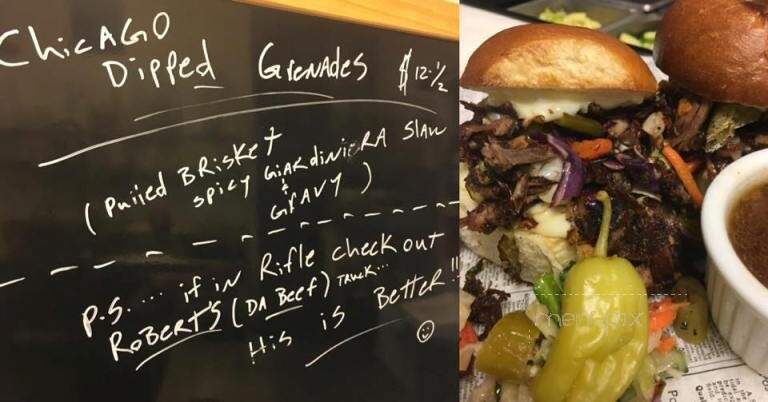 CHICAGO
DIPPED GRENADES $12.½
(Pulled BRISKET
SPICY GIARDINIERA SLAW
+
GRAVY)
P.S.... if in Rifle check out
ROBERT'S (DA BEEF) TRUCK...
His is BETTER!!
menupix